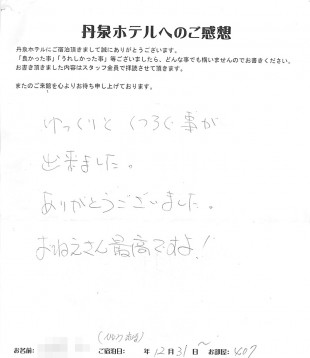 丹泉ホテルへのご感想
丹泉ホテルにご宿泊頂きまして誠にありがとうございます。
「良かった事」「うれしかった事」等ございましたら、どんな事でも構いませんのでお書きください。
お書き頂きました内容はスタッフ全員で拝読させて頂きます。
またのご来館を心よりお待ち申し上げております。
ゆっくりと くつろぐ事が
出来ました。
ありがとうございました。
おねえさん最高ですよ!
お名前: ご宿泊日: 年 12月 31日 〜 お部屋: 407